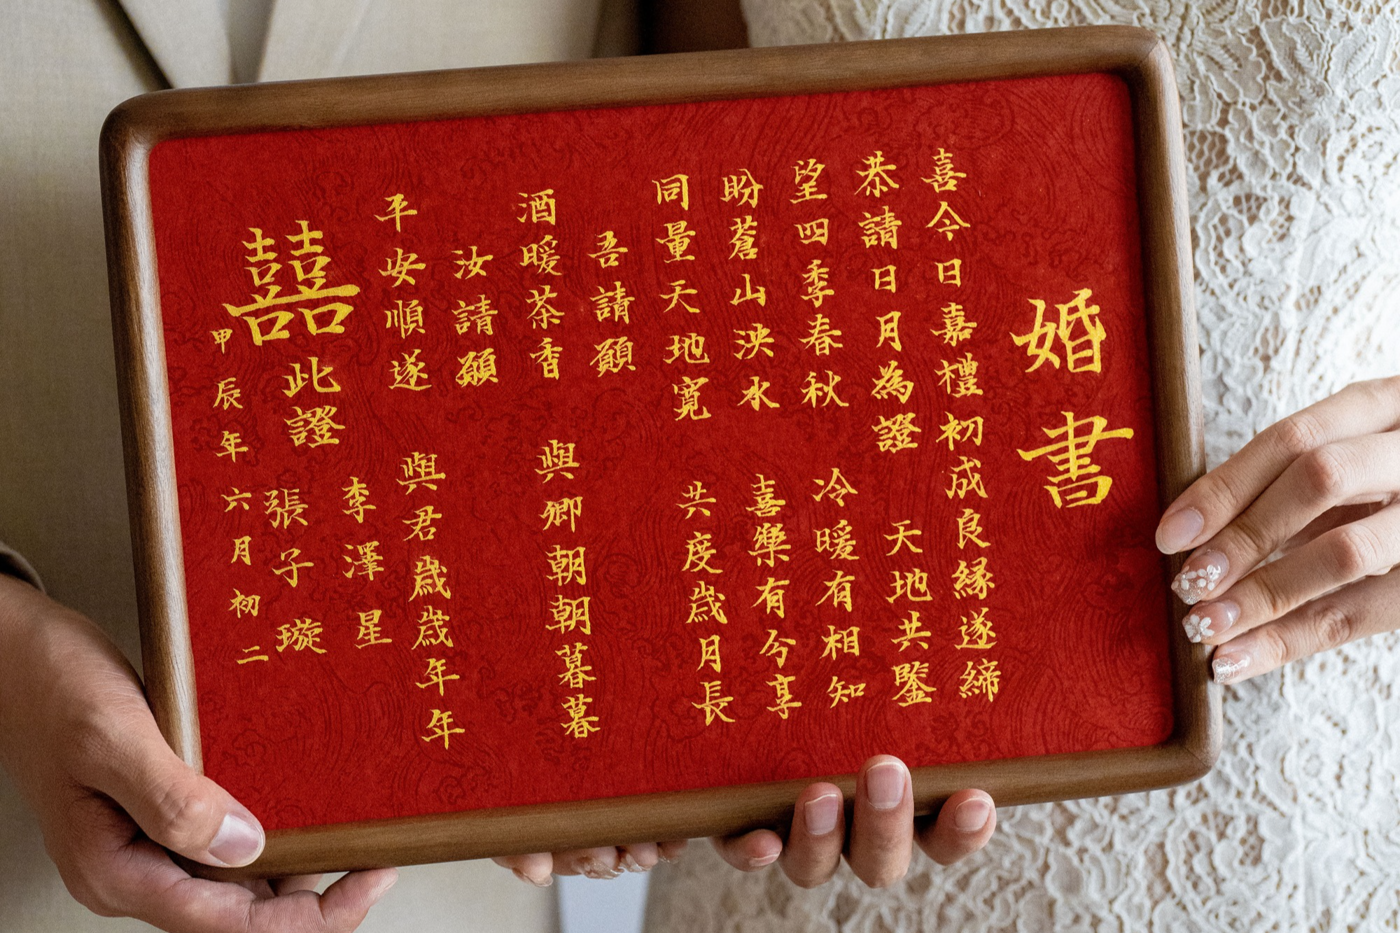 婚書
喜今日嘉禮初成良緣遂締
恭請日月為證 天地共鑒
望四季春秋 冷暖有相知
盼蒼山泱水 喜樂有分享
同量天地寬 共度歲月長
吾請願
酒暖茶香 與卿朝朝暮暮
汝請願
平安順遂 與君歲歲年年
囍 此證
李澤星
張子璇
甲辰年六月初二